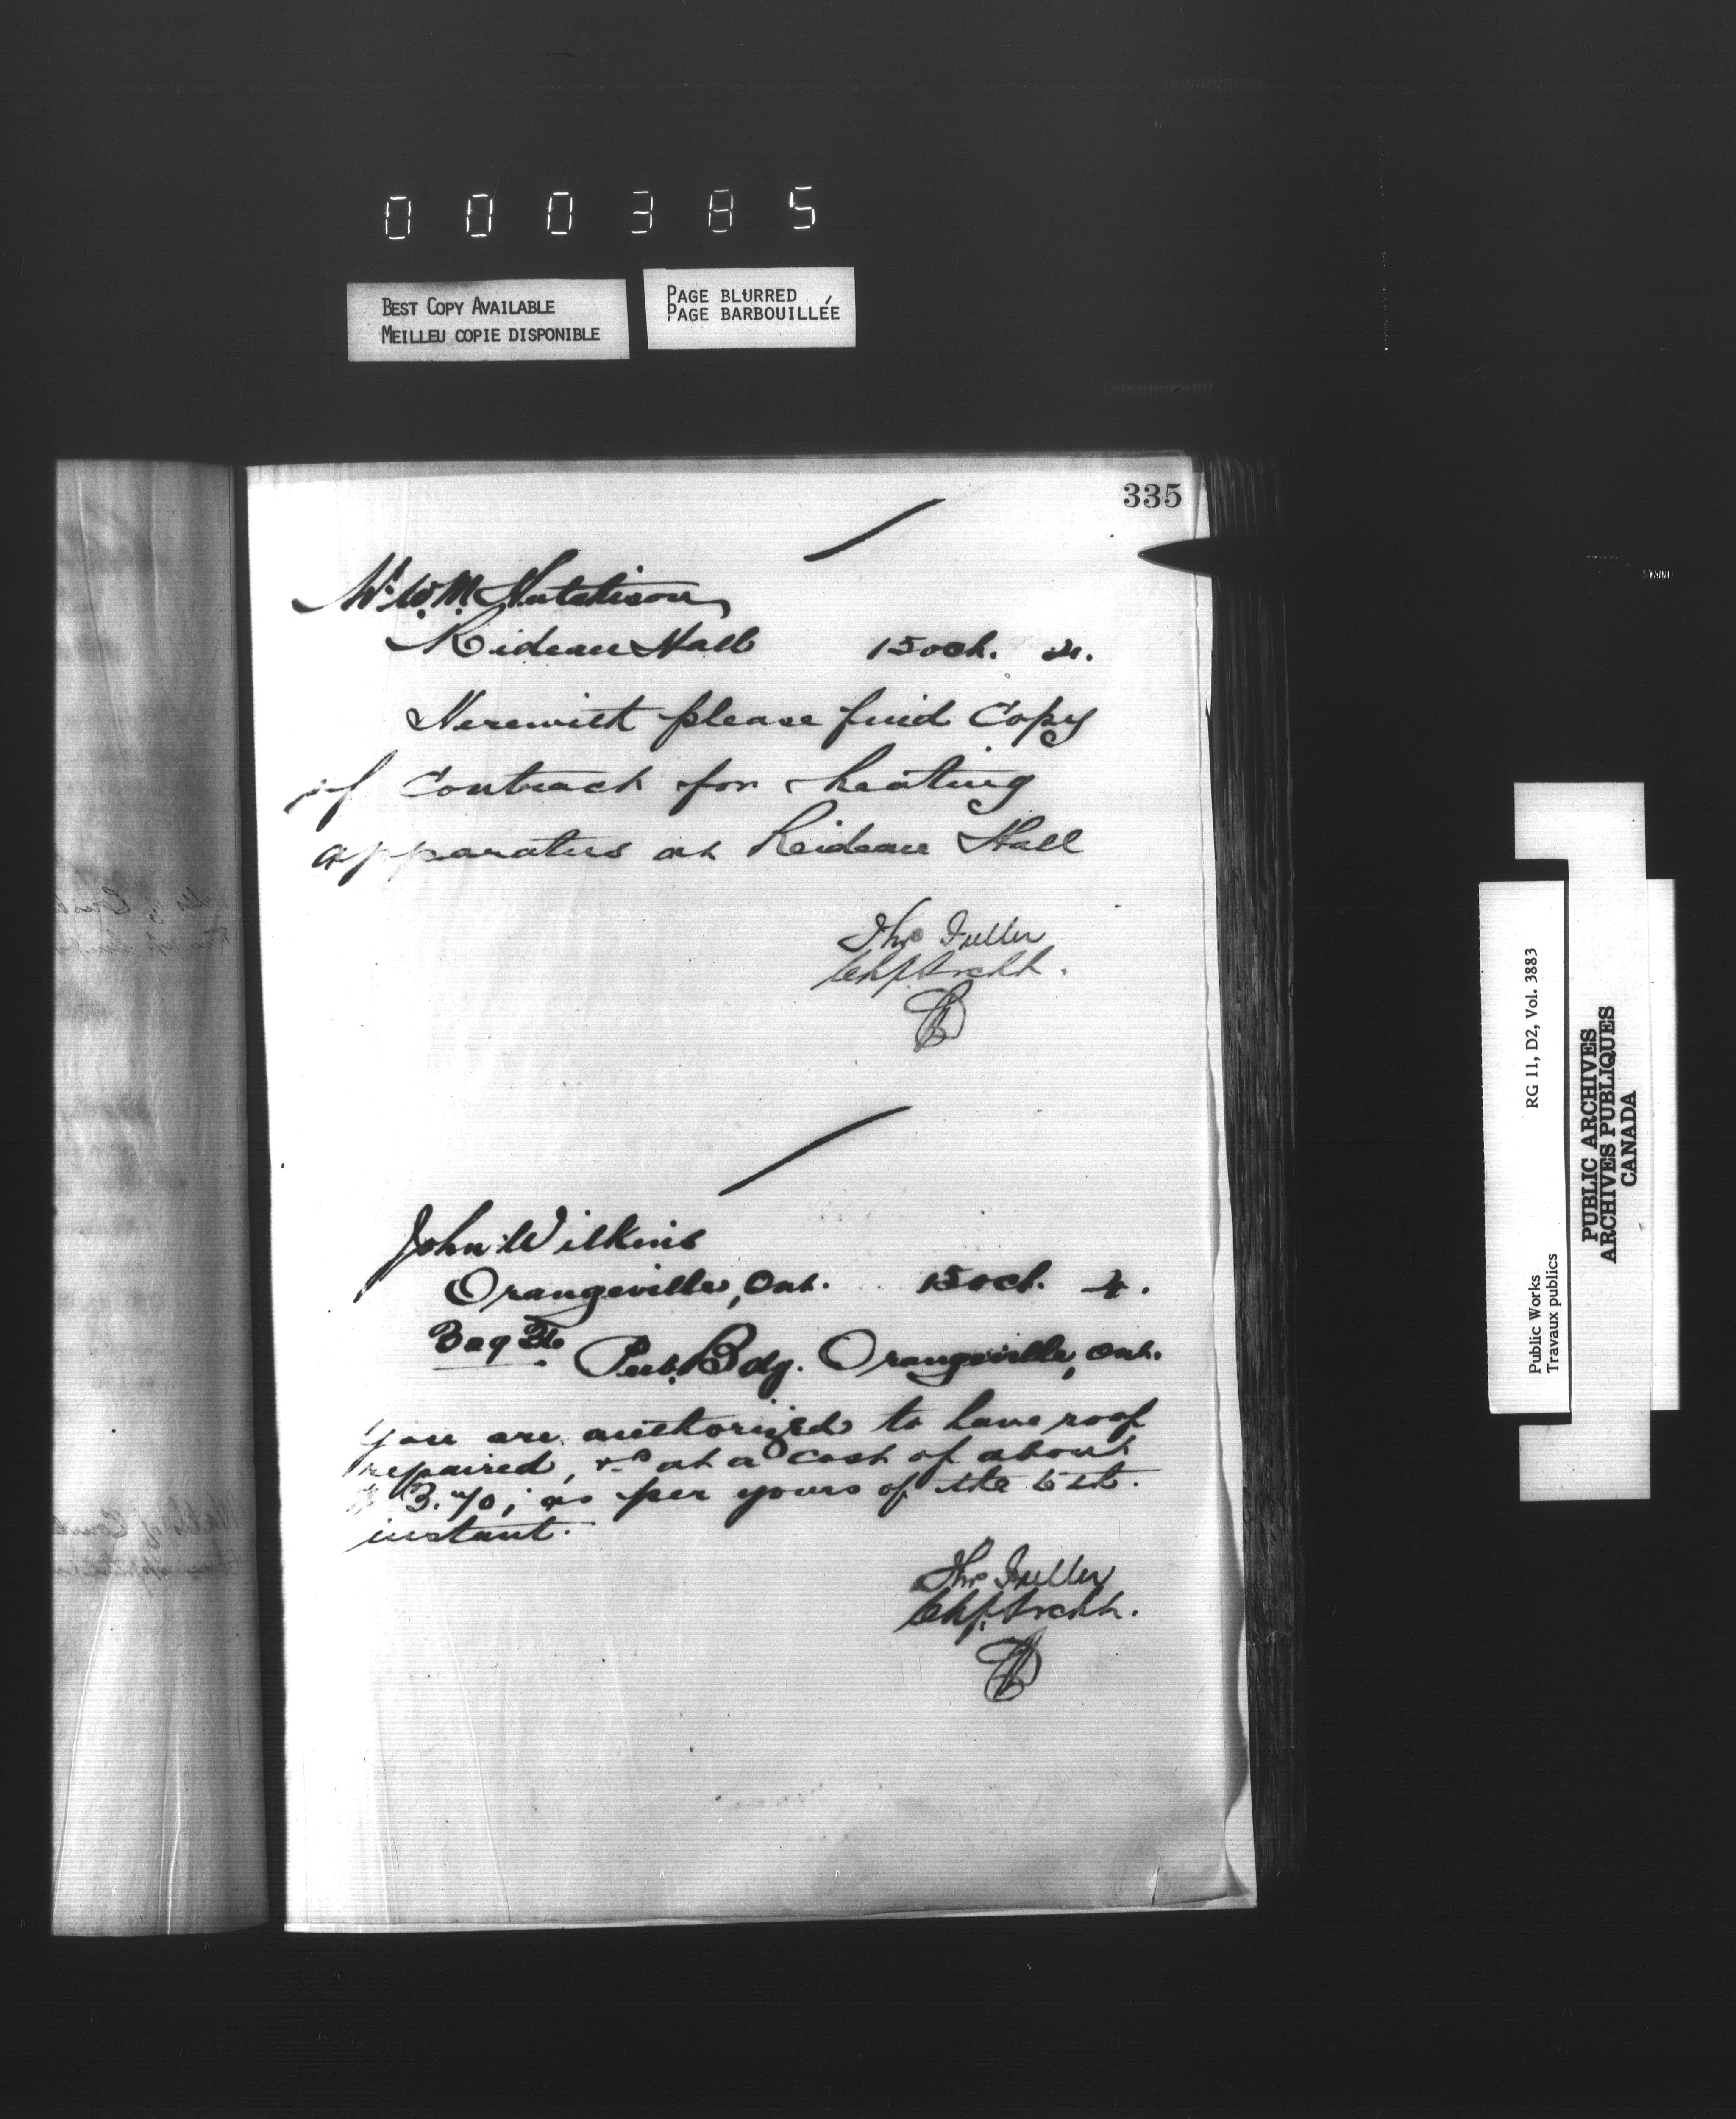 000385
BEST COPY AVAILABLE
MEILLEU COPIE DISPONIBLE
PAGE BLURRED
PAGE BARBOUILLÉE
335
Mr. W. M. Hutchison,
Rideau Hall 15 Oct. 4.
Herewith please find Copy
of Contract for heating
apparatus at Rideau Hall
Thos Fuller
Chf. Archt.
John Wilkins
Orangeville, Ont. 15 Oct. 4.
Pub. Bdg. Orangeville, Ont.
You are authorized to have roof
repaired, &c at a cost of about
$3.70; as per yours of the 6th.
instant.
Thos Fuller
Chf. Archt.
Public Works
Travaux publics
RG 11, D2, Vol. 3883
PUBLIC ARCHIVES
ARCHIVES PUBLIQUES
CANADA